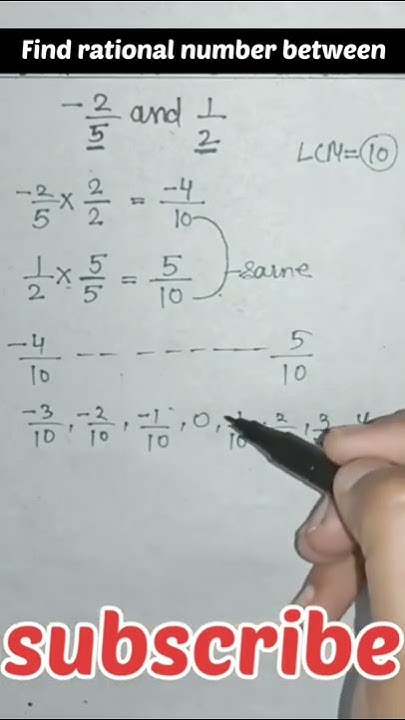 Find rational number between
-2/5 and 1/2
LCM = 10
-2/5 × 2/2 = -4/10
1/2 × 5/5 = 5/10
Same
-4/10 - - - - - - - 5/10
-3/10, -2/10, -1/10, 0, 1/10, 2, 3
subscribe